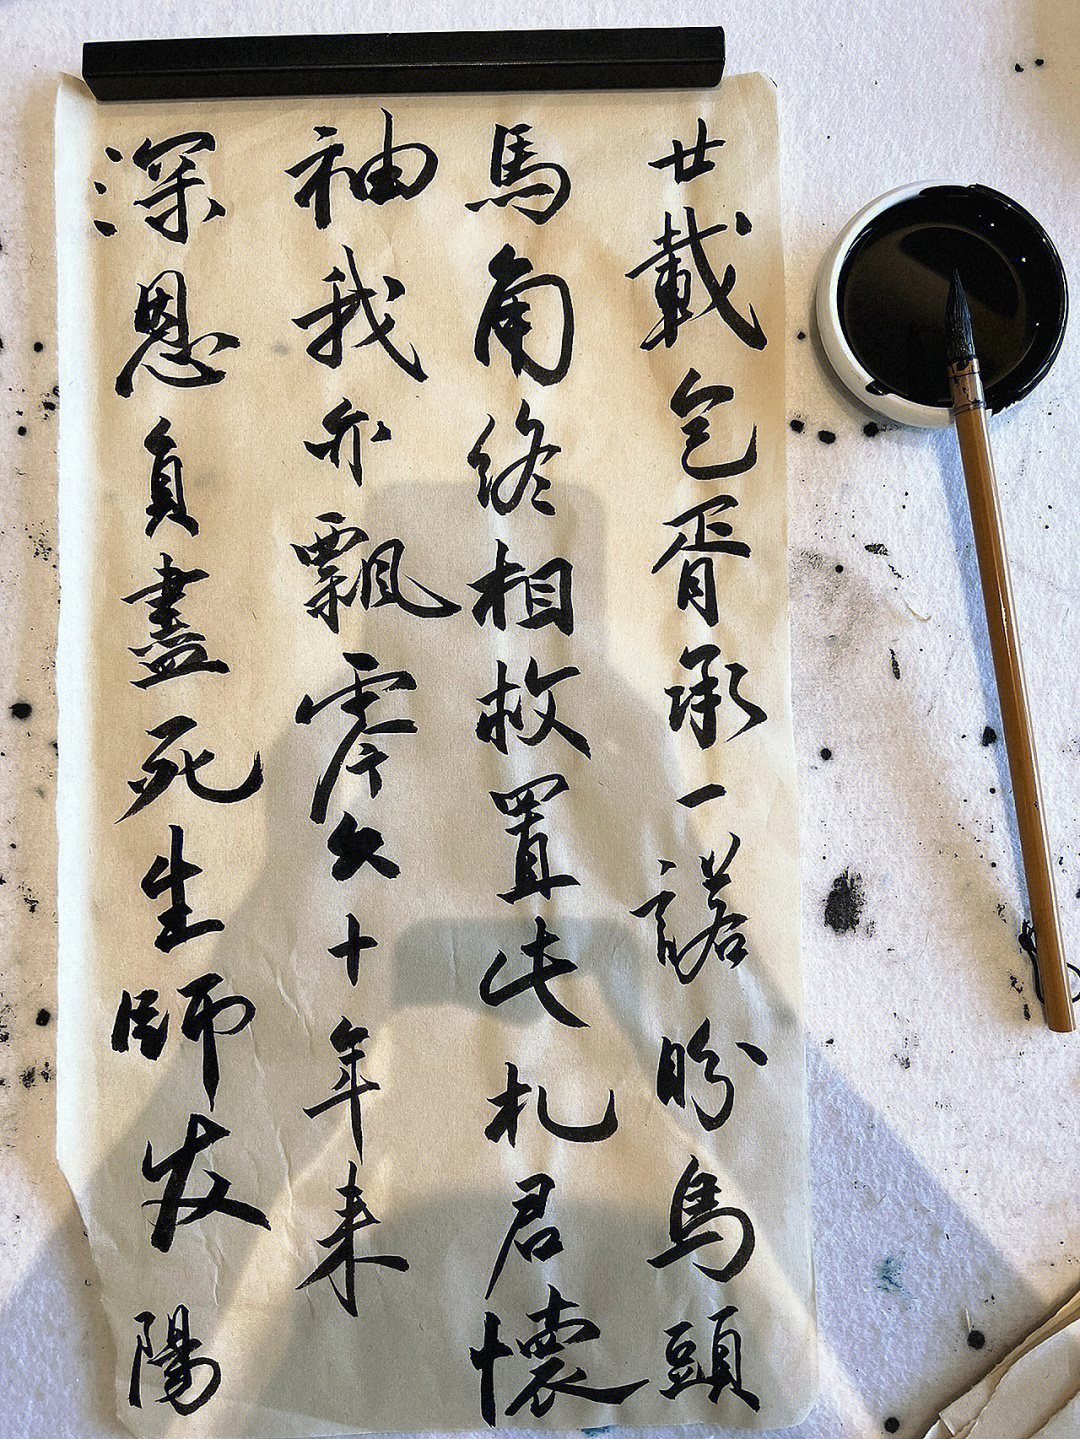 廿載包胥承一諾盼烏頭
馬角終相救置此札君懷
袖我亦飄零久十年来
深恩負盡死生師友陽